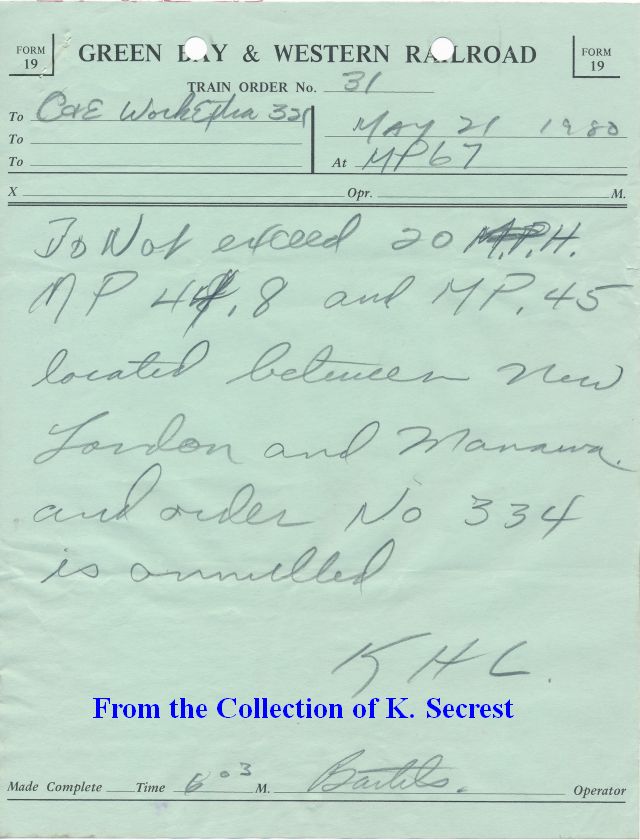 FORM 19
GREEN BAY & WESTERN RAILROAD
FORM 19
TRAIN ORDER No. 31
To C&E Work Extra 321
To
To
MAY 21 1980
At MP67
X Opr. M.
Do Not exceed 20 M.P.H.
MP 44.8 and MP. 45
located between New
London and Manawa.
and order No 334
is annulled
KHL.
From the Collection of K. Secrest
Made Complete Time 6 03 M. Bartels. Operator